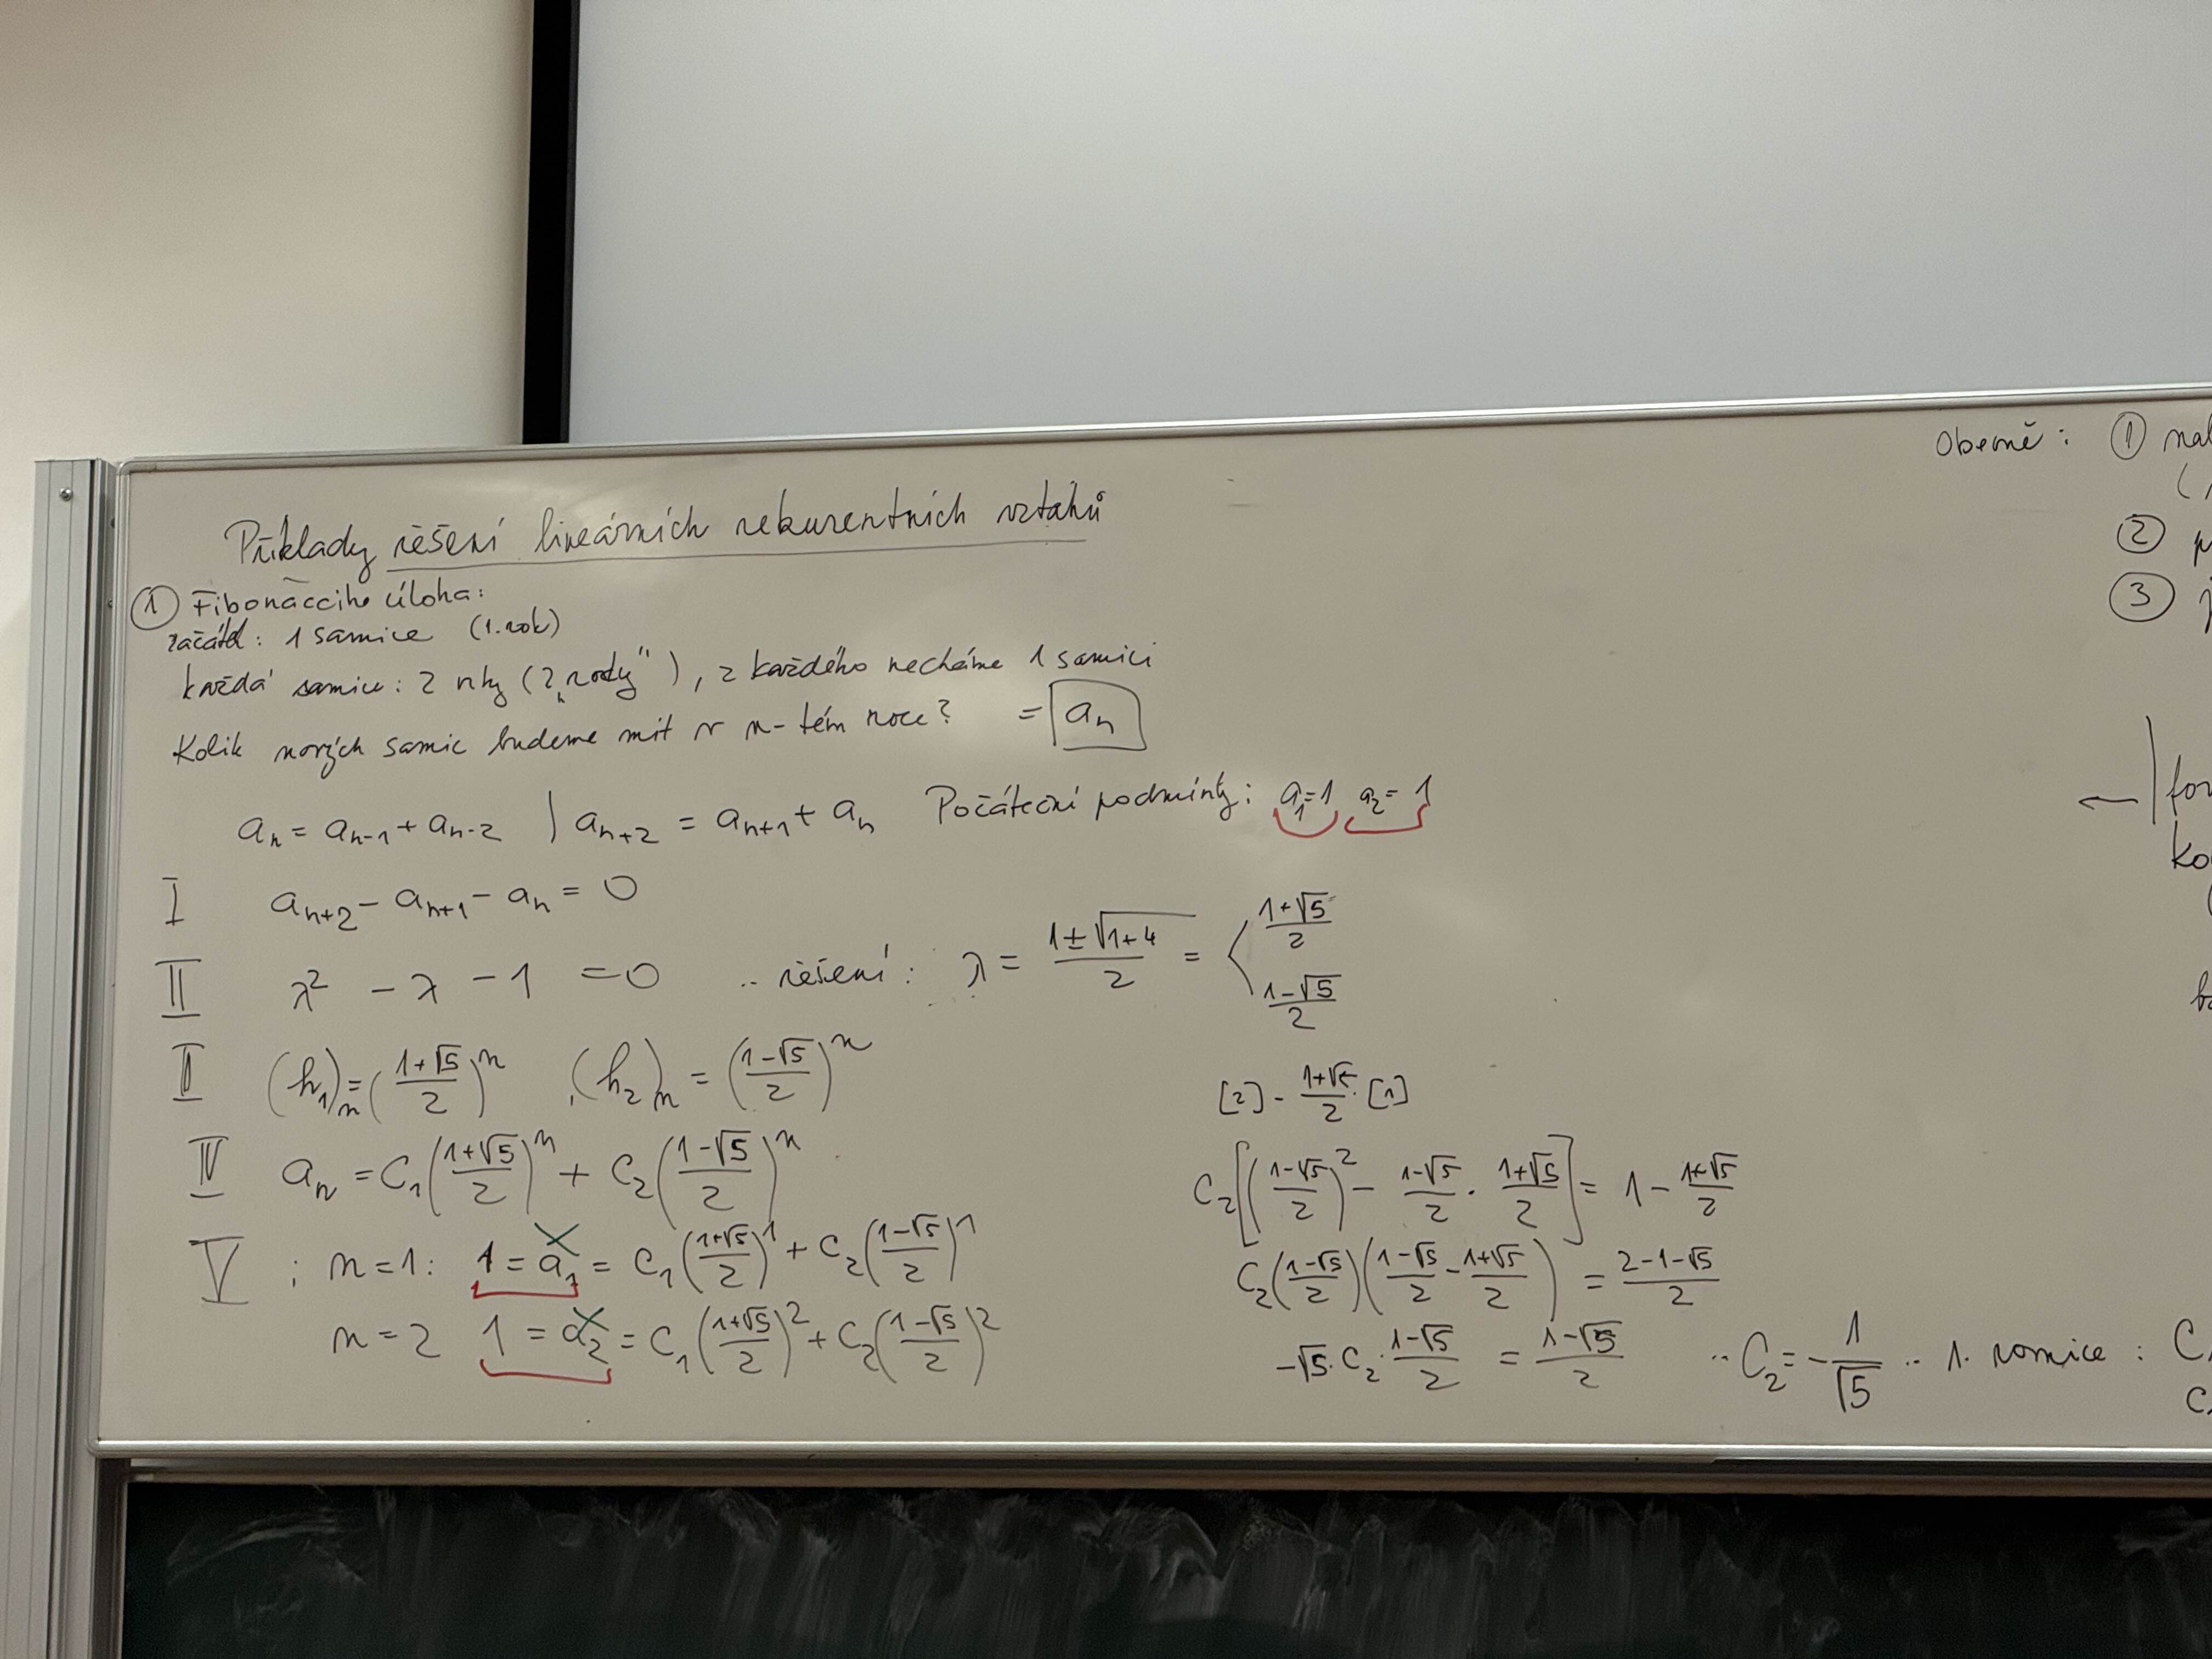 Příklady řešení lineárních rekurentních vztahů
① Fibonacciho úloha:
začátek: 1 samice (1. rok)
každá samice: 2 vrhy (2 „rody“), z každého necháme 1 samici
Kolik nových samic budeme mít v n-tém roce? = a_n
a_n = a_{n-1} + a_{n-2} | a_{n+2} = a_{n+1} + a_n Počáteční podmínky: a_1 = 1 a_2 = 1
I a_{n+2} - a_{n+1} - a_n = 0
II λ² - λ - 1 = 0 .. řešení: λ = (1±√(1+4))/2 = < (1+√5)/2 (1-√5)/2
III (h_1)_n = ((1+√5)/2)^n , (h_2)_n = ((1-√5)/2)^n
IV a_n = C_1 ((1+√5)/2)^n + C_2 ((1-√5)/2)^n
V : n=1: 1 = a_1 = C_1 ((1+√5)/2)^1 + C_2 ((1-√5)/2)^1
n=2 1 = a_2 = C_1 ((1+√5)/2)^2 + C_2 ((1-√5)/2)^2
[2] - (1+√5)/2 · [1]
C_2 [((1-√5)/2)^2 - (1-√5)/2 · (1+√5)/2] = 1 - (1+√5)/2
C_2 ((1-√5)/2) ((1-√5)/2 - (1+√5)/2) = (2-1-√5)/2
-√5 · C_2 · (1-√5)/2 = (1-√5)/2 .. C_2 = -1/√5 .. 1. rovnice : C
Obecně : ①
②
③
←